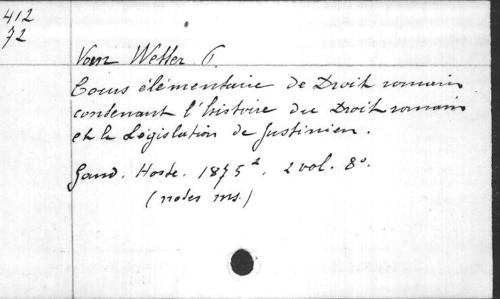 412
72
Van Wetter P.
Cours élémentaire de Droit romain
contenant l'histoire du Droit romain
et la Législation de Justinien.
Gand. Hoste. 1875². 2 vol. 8°.
(notes ms.)